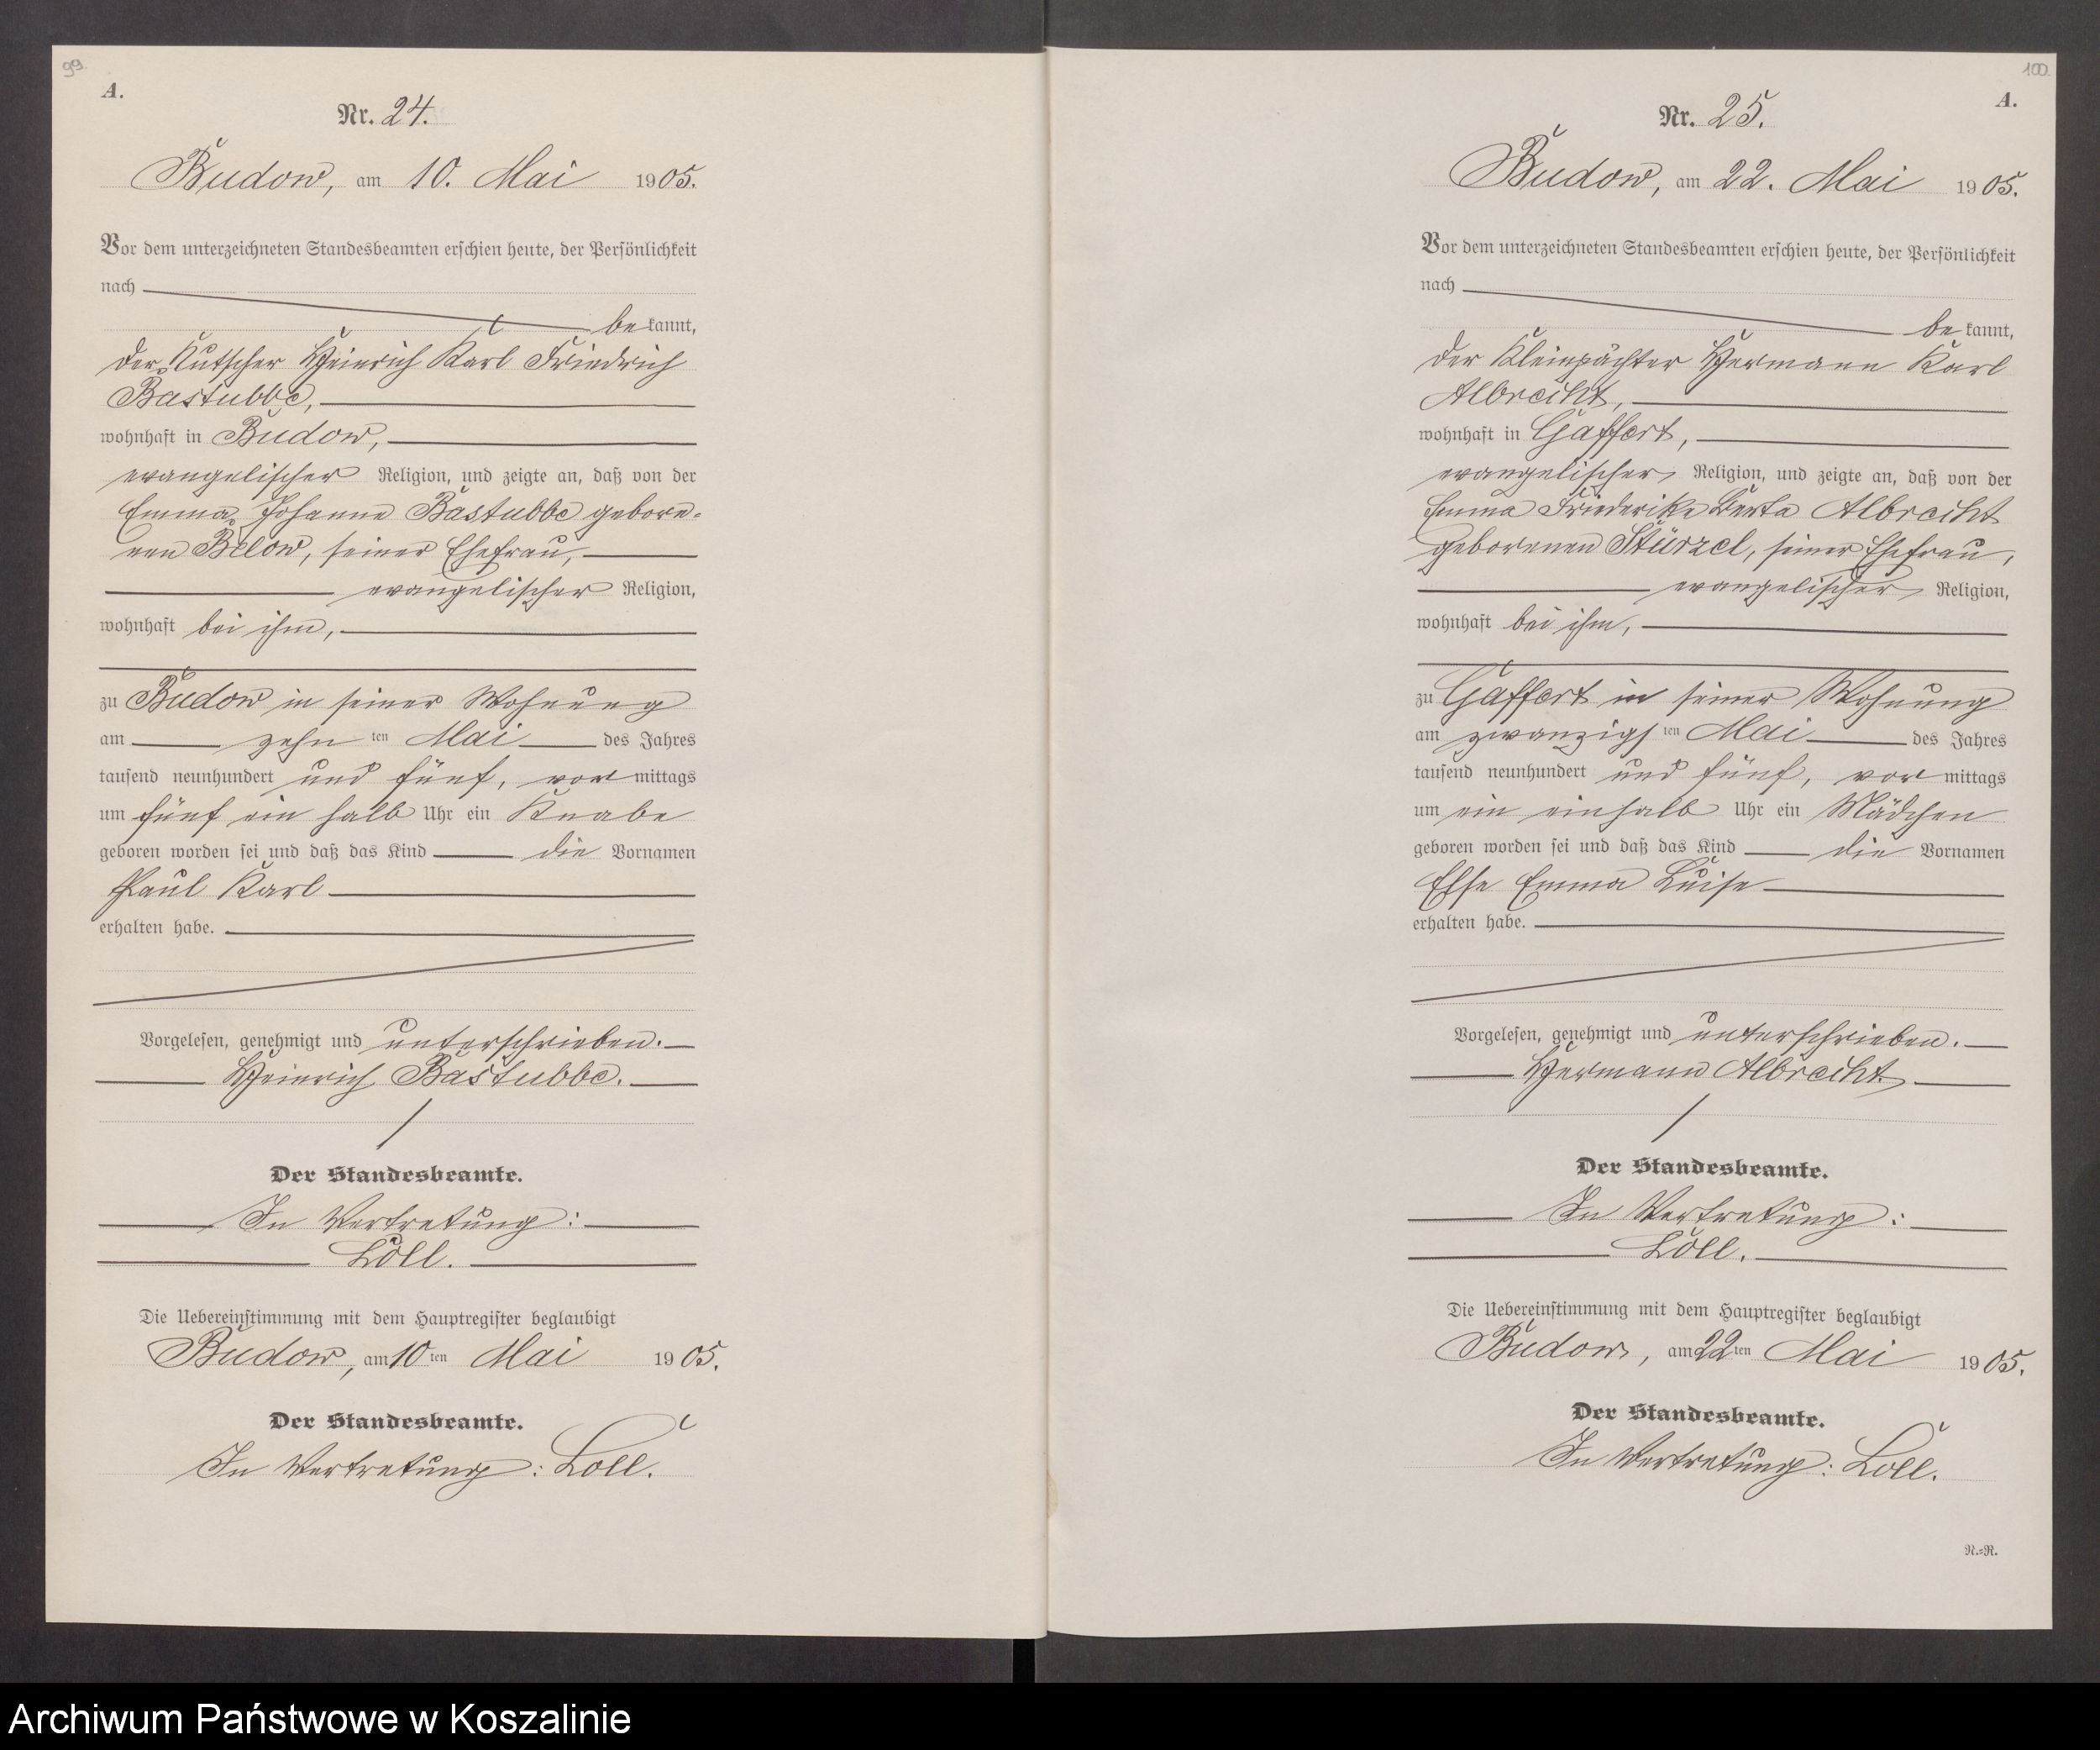 99.
A.
Nr. 24.
Budow, am 10. Mai 1905.
Vor dem unterzeichneten Standesbeamten erschien heute, der Persönlichkeit
nach
be kannt,
der Kutscher Heinrich Karl Friedrich
Bastubbe,
wohnhaft in Budow,
evangelischer Religion, und zeigte an, daß von der
Emma Johanne Bastubbe gebore-
nen Below, seiner Ehefrau,
evangelischer Religion,
wohnhaft bei ihm,
zu Budow in seiner Wohnung
am zehn ten Mai des Jahres
tausend neunhundert und fünf, vor mittags
um fünf ein halb Uhr ein Knabe
geboren worden sei und daß das Kind die Vornamen
Paul Karl
erhalten habe.
Vorgelesen, genehmigt und unterschrieben.
Heinrich Bastubbe.
Der Standesbeamte.
In Vertretung:
Loll.
Die Uebereinstimmung mit dem Hauptregister beglaubigt
Budow, am 10 ten Mai 1905.
Der Standesbeamte.
In Vertretung: Loll.
100.
A.
Nr. 25.
Budow, am 22. Mai 1905.
Vor dem unterzeichneten Standesbeamten erschien heute, der Persönlichkeit
nach
be kannt,
der Kleinpächter Hermann Karl
Albrecht,
wohnhaft in Gaffert,
evangelischer Religion, und zeigte an, daß von der
Emma Friederike Berta Albrecht
geborenen Stürzel, seiner Ehefrau,
evangelischer Religion,
wohnhaft bei ihm,
zu Gaffert in seiner Wohnung
am zwanzigs ten Mai des Jahres
tausend neunhundert und fünf, vor mittags
um ein einhalb Uhr ein Mädchen
geboren worden sei und daß das Kind die Vornamen
Else Emma Luise
erhalten habe.
Vorgelesen, genehmigt und unterschrieben.
Hermann Albrecht.
Der Standesbeamte.
In Vertretung:
Loll.
Die Uebereinstimmung mit dem Hauptregister beglaubigt
Budow, am 22 ten Mai 1905.
Der Standesbeamte.
In Vertretung: Loll.
R.=R.
Archiwum Państwowe w Koszalinie